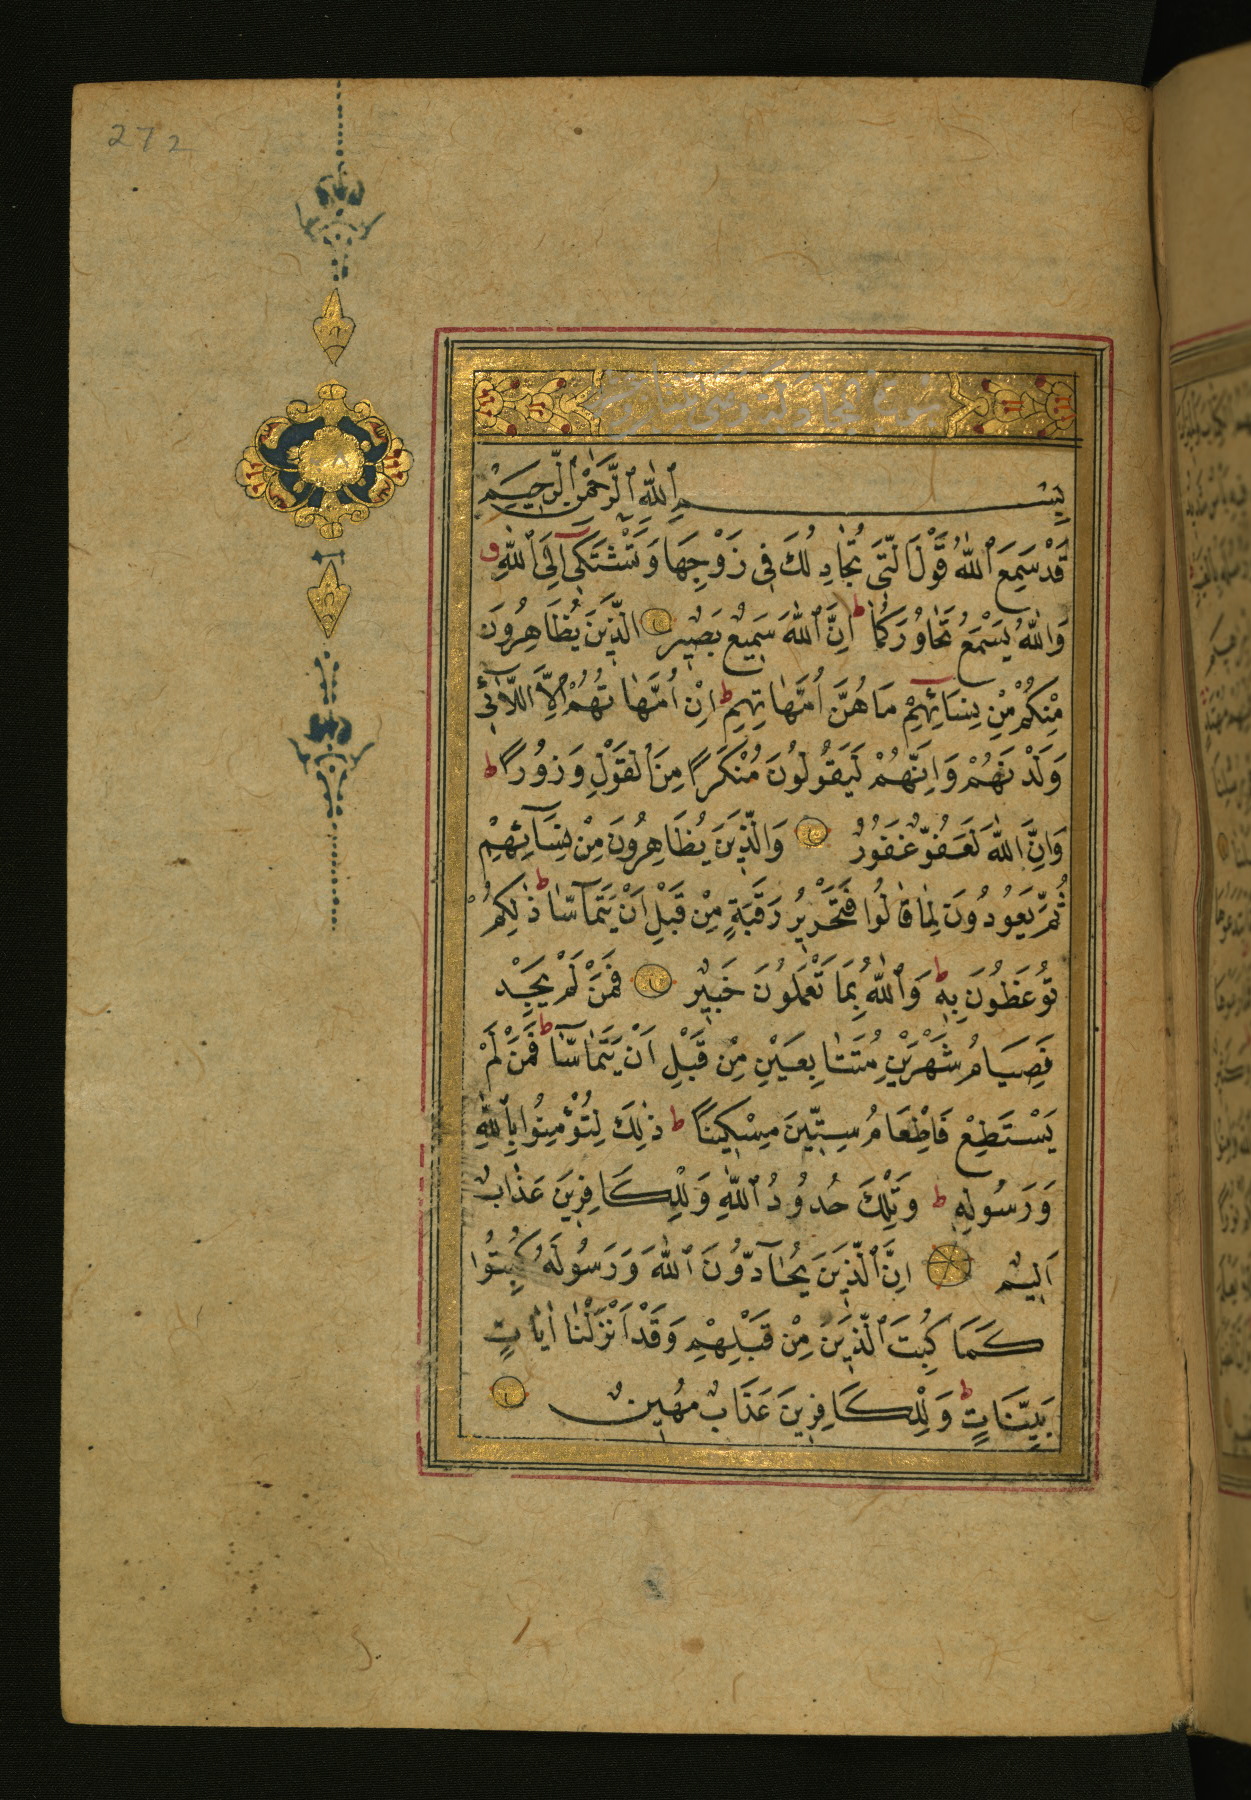 272
سورة المجادلة وهي
بِسْمِ ٱللّٰهِ ٱلرَّحْمٰنِ ٱلرَّحِيمِ
قَدْ سَمِعَ ٱللّٰهُ قَوْلَ الَّتِى تُجَادِلُكَ فِى زَوْجِهَا وَتَشْتَكِىٓ اِلَى ٱللّٰهِ
وَاللّٰهُ يَسْمَعُ تَحَاوُرَكُمَا ط اِنَّ ٱللّٰهَ سَمِيعٌ بَصِيرٌ الَّذِينَ يُظَاهِرُونَ
مِنْكُمْ مِنْ نِسَآئِهِمْ مَا هُنَّ اُمَّهَاتِهِمْ ط اِنْ اُمَّهَاتُهُمْ اِلَّا اللَّآئِى
وَلَدْنَهُمْ وَاِنَّهُمْ لَيَقُولُونَ مُنْكَرًا مِنَ الْقَوْلِ وَزُورًا ط
وَاِنَّ اللّٰهَ لَعَفُوٌّ غَفُورٌ وَالَّذِينَ يُظَاهِرُونَ مِنْ نِسَآئِهِمْ
ثُمَّ يَعُودُونَ لِمَا قَالُوا فَتَحْرِيرُ رَقَبَةٍ مِنْ قَبْلِ اَنْ يَتَمَآسَّا ط ذٰلِكُمْ
تُوعَظُونَ بِهِ ط وَٱللّٰهُ بِمَا تَعْمَلُونَ خَبِيرٌ فَمَنْ لَمْ يَجِدْ
فَصِيَامُ شَهْرَيْنِ مُتَتَابِعَيْنِ مِنْ قَبْلِ اَنْ يَتَمَآسَّا ط فَمَنْ لَمْ
يَسْتَطِعْ فَاِطْعَامُ سِتِّينَ مِسْكِينًا ط ذٰلِكَ لِتُؤْمِنُوا بِٱللّٰهِ
وَرَسُولِهِ ط وَتِلْكَ حُدُودُ ٱللّٰهِ وَلِلْكَافِرِينَ عَذَابٌ
اَلِيمٌ اِنَّ ٱلَّذِينَ يُحَآدُّونَ ٱللّٰهَ وَرَسُولَهُ كُبِتُوا
كَمَا كُبِتَ ٱلَّذِينَ مِنْ قَبْلِهِمْ وَقَدْ اَنْزَلْنَا اٰيَاتٍ
بَيِّنَاتٍ ط وَلِلْكَافِرِينَ عَذَابٌ مُهِينٌ